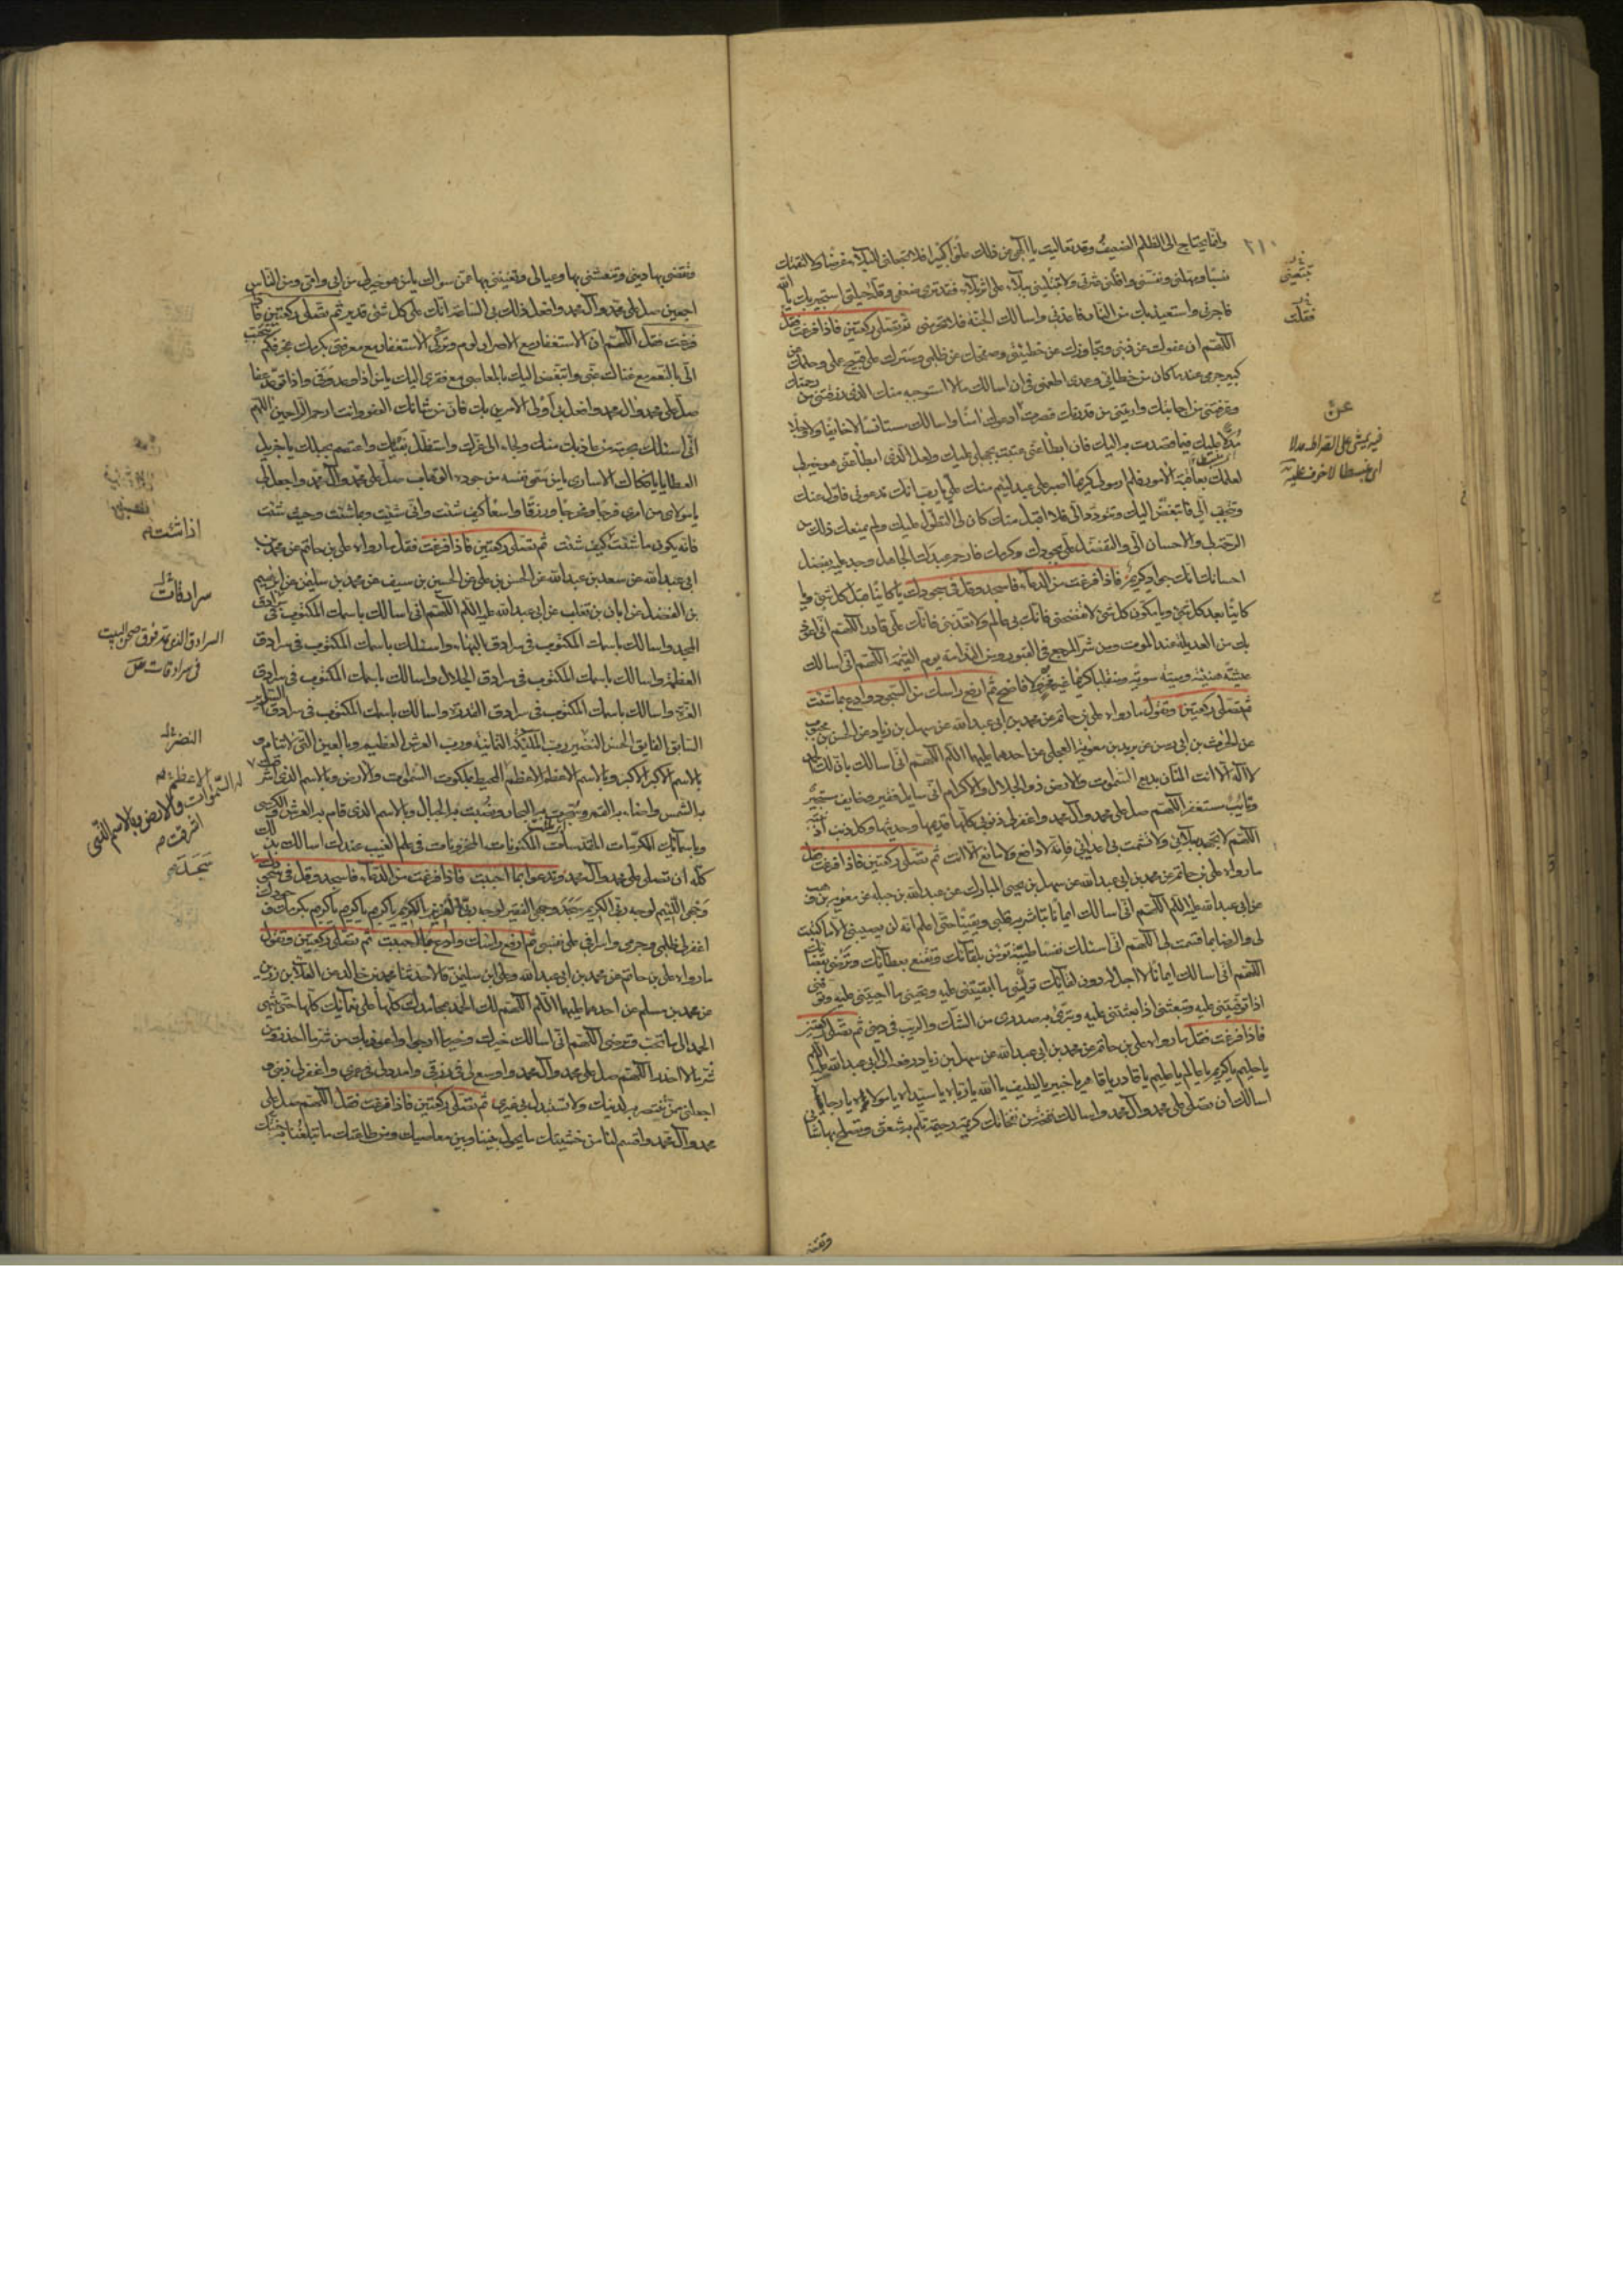 وانما يحتاج الى الظلم الضعيف وقد تعاليت يا الهى عن ذلك علوا كبيرا فلا تجعلنى للبلاء غرضا ولا لنقمتك
نصبا ومهلنى ونفسنى واقلنى عثرتى ولا تتبعنى ببلاء على اثر بلاء فقد ترى ضعفى وقلة حيلتى استجير بك يا الله
فاجرنى واستعيذ بك من النار فاعذنى واسالك الجنة فلا تحرمنى ثم تصلى ركعتين فاذا فرغت فقل
اللهم ان عفوك عن ذنبى وتجاوزك عن خطيئتى وصفحك عن ظلمى وسترك على قبيح عملى وحلمك عن
كبير جرمى عندما كان من خطائى وعمدى اطمعنى فى ان اسالك ما لا استوجبه منك الذى رزقتنى من رحمتك
وعرفتنى من اجابتك واريتنى من قدرتك فصرت ادعوك آمنا واسالك مستانسا لا خائفا ولا وجلا
مدلا عليك فيما قصدت به اليك فان ابطأ عنى عتبت بجهلى عليك ولعل الذى ابطأ عنى هو خير لى
لعلمك بعاقبة الامور فلم ار مولى كريما اصبر على عبد لئيم منك على يا رب انك تدعونى فاولى عنك
وتتحبب الى فاتبغض اليك وتتودد الى فلا اقبل منك كان لى التطول عليك ولم يمنعك ذلك من
الرحمة لى والاحسان الى والتفضل على بجودك وكرمك فارحم عبدك الجاهل وجد عليه بفضل
احسانك انك جواد كريم فاذا فرغت من الدعاء فاسجد وقل فى سجودك يا كائنا قبل كل شئ ويا
كائنا بعد كل شئ ويا مكون كل شئ لا تفضحنى فانك بى عالم ولا تعذبنى فانك على قادر اللهم انى اعوذ
بك من العديلة عند الموت ومن شر المرجع فى القبور ومن الندامة يوم القيمة اللهم انى اسالك
عيشة هنيئة وميتة سوية ومنقلبا كريما غير مخز ولا فاضح ثم ارفع راسك من السجود وادع بما شئت
ثم تصلى ركعتين وتقول ما رواه على بن حاتم عن محمد بن ابى عبد الله عن سهل بن زياد عن الحسن بن محبوب
عن الحرث بن ابى رسن عن بريد بن معوية العجلى عن احدهما عليهما السلام اللهم انى اسالك بان لك الحمد
لا اله الا انت المنان بديع السموات والارض ذو الجلال والاكرام انى سايل فقير وخايف مستجير
وتايب مستغفر اللهم صل على محمد وآل محمد واغفر لى ذنوبى كلها قديمها وحديثها وكل ذنب اذنبته
اللهم لا تجهد بلائى ولا تشمت بى اعدائى فانه لا دافع ولا مانع الا انت ثم تصلى ركعتين فاذا فرغت فقل
ما رواه على بن حاتم عن محمد بن ابى عبد الله عن سهل بن يحيى المبارك عن عبد الله بن جبله عن معوية بن وهب
عن ابى عبد الله عليه السلام اللهم انى اسالك ايمانا تباشر به قلبى ويقينا حتى اعلم انه لن يصيبنى الا ما كتبت
لى والرضا بما قسمت لى اللهم انى اسئلك نفسا طيبة تؤمن بلقائك وتقنع بعطائك وترضى بقضائك
اللهم انى اسالك ايمانا لا اجل له دون لقائك تولنى ما ابقيتنى عليه وتحيينى ما احييتنى عليه وتوفنى
اذا توفيتنى عليه وتبعثنى اذا بعثتنى عليه وتبرئ به صدرى من الشك والريب فى دينى ثم تصلى ركعتين
فاذا فرغت فقل ما رواه على بن حاتم عن محمد بن ابى عبد الله عن سهل بن زياد رفعه الى ابى عبد الله عليه السلام
يا حليم يا كريم يا عالم يا عليم يا قادر يا قاهر يا خبير يا لطيف يا الله يا رباه يا سيداه يا مولاه يا رجاياه
اسالك ان تصلى على محمد وآل محمد واسالك نفحة من نفحاتك كريمة رحيمة تلم بها شعثى وتصلح بها شانى
وتقضى
٢١٠
تتبعنى
فقلت
عن
فيه يمشى على الصراط مدلا
اى منبسطا لا خوف عليه
وتقضى بها دينى وتنعشنى بها وعيالى وتغنينى بها عمن سواك يا من هو خير لى من ابى وامى ومن الناس
اجمعين صل على محمد وآل محمد وافعل ذلك بى الساعة انك على كل شئ قدير ثم تصلى ركعتين فاذا
فرغت فقل اللهم ان الاستغفار مع الاصرار لؤم وتركى الاستغفار مع معرفتى بكرمك عجز فكم تتحبب
الى بالنعم مع غناك عنى واتبغض اليك بالمعاصى مع فقرى اليك يا من اذا وعد وفى واذا توعد عفا
صل على محمد وال محمد وافعل بى اولى الامرين بك فان من شانك العفو وانت ارحم الراحمين اللهم
انى اسئلك بحرمة من عاذ بك منك ولجا الى عزك واستظل بفيئك واعتصم بحبلك يا جزيل
العطايا يا فكاك الاسارى يا من سمى نفسه من جوده الوهاب صل على محمد وآل محمد واجعل لى
يا مولاى من امرى فرجا ومخرجا ورزقا واسعا كيف شئت وانى شئت وبما شئت وحيث شئت
فانه يكون ما شئت كيف شئت ثم تصلى ركعتين فاذا فرغت فقل ما رواه على بن حاتم عن محمد بن
ابى عبد الله عن سعد بن عبد الله عن الحسن بن على عن الحسين بن سيف عن محمد بن سليمن عن ابرهيم
بن الفضل عن ابان بن تغلب عن ابى عبد الله عليه السلام اللهم انى اسالك باسمك المكتوب فى سرادق
المجد واسالك باسمك المكتوب فى سرادق البهاء واسئلك باسمك المكتوب فى سرادق
العظمة واسالك باسمك المكتوب فى سرادق الجلال واسالك باسمك المكتوب فى سرادق
العزة واسالك باسمك المكتوب فى سرادق القدرة واسالك باسمك المكتوب فى سرادق السرائر
السابق الفايق الحسن النضير رب الملئكة الثمانية ورب العرش العظيم وبالعين التى لا تنام و
بالاسم الاكبر الاكبر وبالاسم الاعظم الاعظم المحيط بملكوت السموات والارض وبالاسم الذى اشرقت
به الشمس واضاء به القمر وسجرت به البحار ونصبت به الجبال وبالاسم الذى قام به العرش والكرسى
وباسمائك المكرمات المقدسات المكنونات المخزونات فى علم الغيب عندك اسالك بذلك
كله ان تصلى على محمد وآل محمد وتدعو بما احببت فاذا فرغت من الدعاء فاسجد وقل فى سجودك
سجد وجهى اللئيم لوجه ربى الكريم سجد وجهى الفقير لوجه ربى العزيز الكريم يا كريم يا كريم يا كريم بكرمك وجودك
اغفر لى ظلمى وجرمى واسرافى على نفسى ثم ارفع راسك وادع بما احببت ثم تصلى ركعتين وتقول
ما رواه على بن حاتم عن محمد بن ابى عبد الله وعلى بن سليمن قالا حدثنا محمد بن خالد عن العلا بن رزين
عن محمد بن مسلم عن احدهما عليهما السلام اللهم لك الحمد بمحامدك كلها على نعمائك كلها حتى ينتهى
الحمد الى ما تحب وترضى اللهم انى اسالك خيرك وخير ما ارجو واعوذ بك من شر ما احذر ومن
شر ما لا احذر اللهم صل على محمد وآل محمد واوسع لى فى رزقى وامدد لى فى عمرى واغفر لى ذنبى و
اجعلنى ممن تنتصر به لدينك ولا تستبدل بى غيرى ثم تصلى ركعتين فاذا فرغت فقل اللهم صل على
محمد وآل محمد واقسم لنا من خشيتك ما يحول بيننا وبين معاصيك ومن طاعتك ما تبلغنا به جنتك
اذا شئت
سرادقات
السرادق الذى يمد فوق صحن البيت
فى سرادقات
النضر
الاعظم
له السموات والارض وبالاسم الذى
اشرقت
سجد